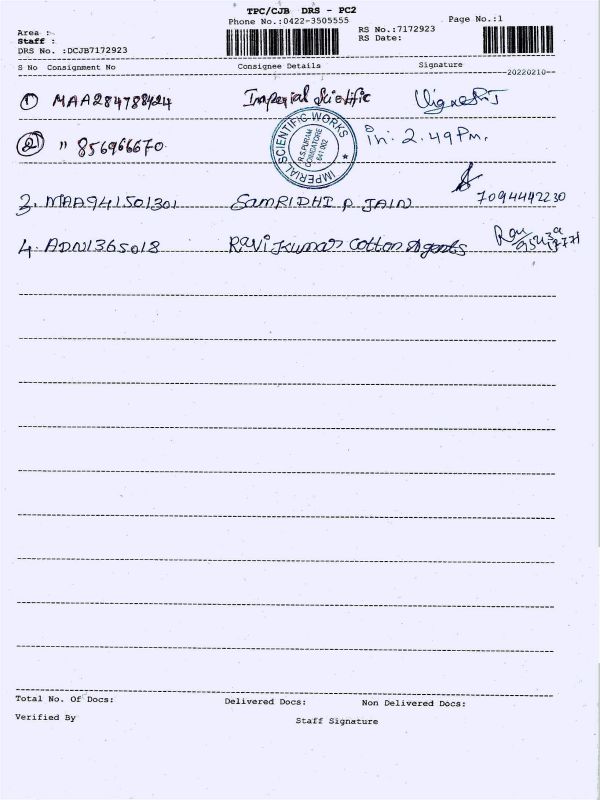 TPC/CJB DRS - PC2
Phone No.:0422-3505555
Page No.:1
Area :
Staff :
DRS No. :DCJB7172923
RS No.:7172923
RS Date:
S No Consignment No Consignee Details Signature
20220210
1 MAA284788424 Imperial Scientific Vignesh J
IMPERIAL SCIENTIFIC WORKS
R.S.PURAM
COIMBATORE
641 002
2 " 856966670 in: 2.49 Pm.
3. MAA941501301 SAMRIDHI P JAIN 7094442230
4. ADN1365018 Ravi Kumar Cotton Agents Rav
Total No. Of Docs: Delivered Docs: Non Delivered Docs:
Verified By Staff Signature